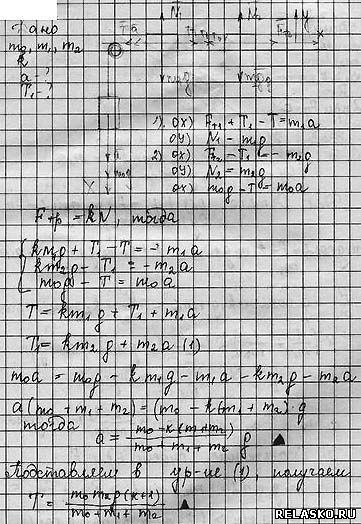 Дано
m₀, m₁, m₂
k
a - ?
T₁ - ?
N₁ N₂ y
x
1). ox) Fтр₁ + T₁ - T = m₁a
oy) N₁ - m₁g
2) ox) Fтр₂ - T₁ = - m₂g
oy) N₂ = m₂g
ox) m₀g - T = m₀a
Fтр = kN, тогда
km₁g + T₁ - T = - m₁a
km₂g - T₁ = - m₂a
m₀g - T = m₀a
T = km₁g + T₁ + m₁a
T₁ = km₂g + m₂a (1)
m₀a = m₀g - km₁g - m₁a - km₂g - m₂a
a(m₀ + m₁ + m₂) = (m₀ - k(m₁ + m₂) g
тогда
a = m₀ - k(m₁ + m₂) / m₀ + m₁ + m₂ g
Подставляем в ур-ие (1), получаем
T = m₀m₂g(k+1) / m₀ + m₁ + m₂
RELASKO.RU